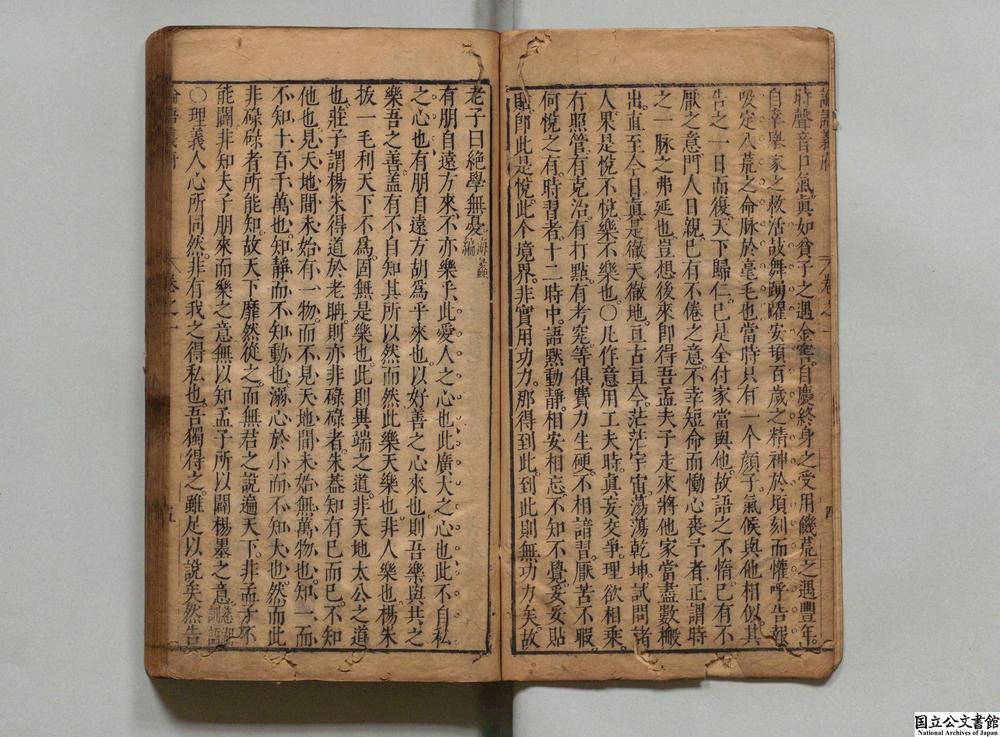 時聲音口氣真如貧子之遇金窖自慶終身之受用饑荒之遇豐年
自幸舉家之救活故舞蹈踴躍安頓百歲之精神於頃刻而懽呼告報
吸定八荒之命脉於毫毛也當時只有一个顏子氣候與他相似其
告之一日而復天下歸仁已是全付家當與他故語之不惰已有不
厭之意門人日親已有不倦之意不幸短命而慟心喪子者正謂時
之一脉之弗延也豈想後來即得吾孟夫子走來將他家當盡數搬
出直至今日真是徹天徹地亘古亘今茫茫宇宙蕩蕩乾坤試問諸
人果是悅不悅樂不樂也〇凡作意用工夫時真妄交爭理欲相乘
有照管有克治有打點有考究等俱費力生硬不相諳習厭苦不暇
何悅之有時習者十二時中語默動靜相安相忘不知不覺妥妥貼
貼即此是悅此个境界非實用功力那得到此到此則無功力矣故
卷之一
四
老子曰絕學無憂
有朋自遠方來不亦樂乎此愛人之心也此廣大之心也此不自私
之心也有朋自遠方胡為乎來也以好善之心來也則吾樂與共之
樂吾之善蓋有不自知其所以然而然此樂天樂也非人樂也楊朱
拔一毛利天下不為固無是樂也此則異端之道非天地太公之道
也莊子謂楊朱得道於老聃則亦非碌碌者朱蓋知有已而已不知
他也見天地間未始有一物而不見天地間未始無萬物也知一而
不知十百千萬也知靜而不知動也溺心於小而不知大也然而此
非碌碌者所能知故天下靡然從之而無君之說遍天下非孟子不
能闢非知夫子朋來而樂之意無以知孟子所以闢楊墨之意慈湖訓語
〇理義人心所同然非有我之得私也吾獨得之雖足以說矣然告
卷之一
五
国立公文書館
National Archives of Japan